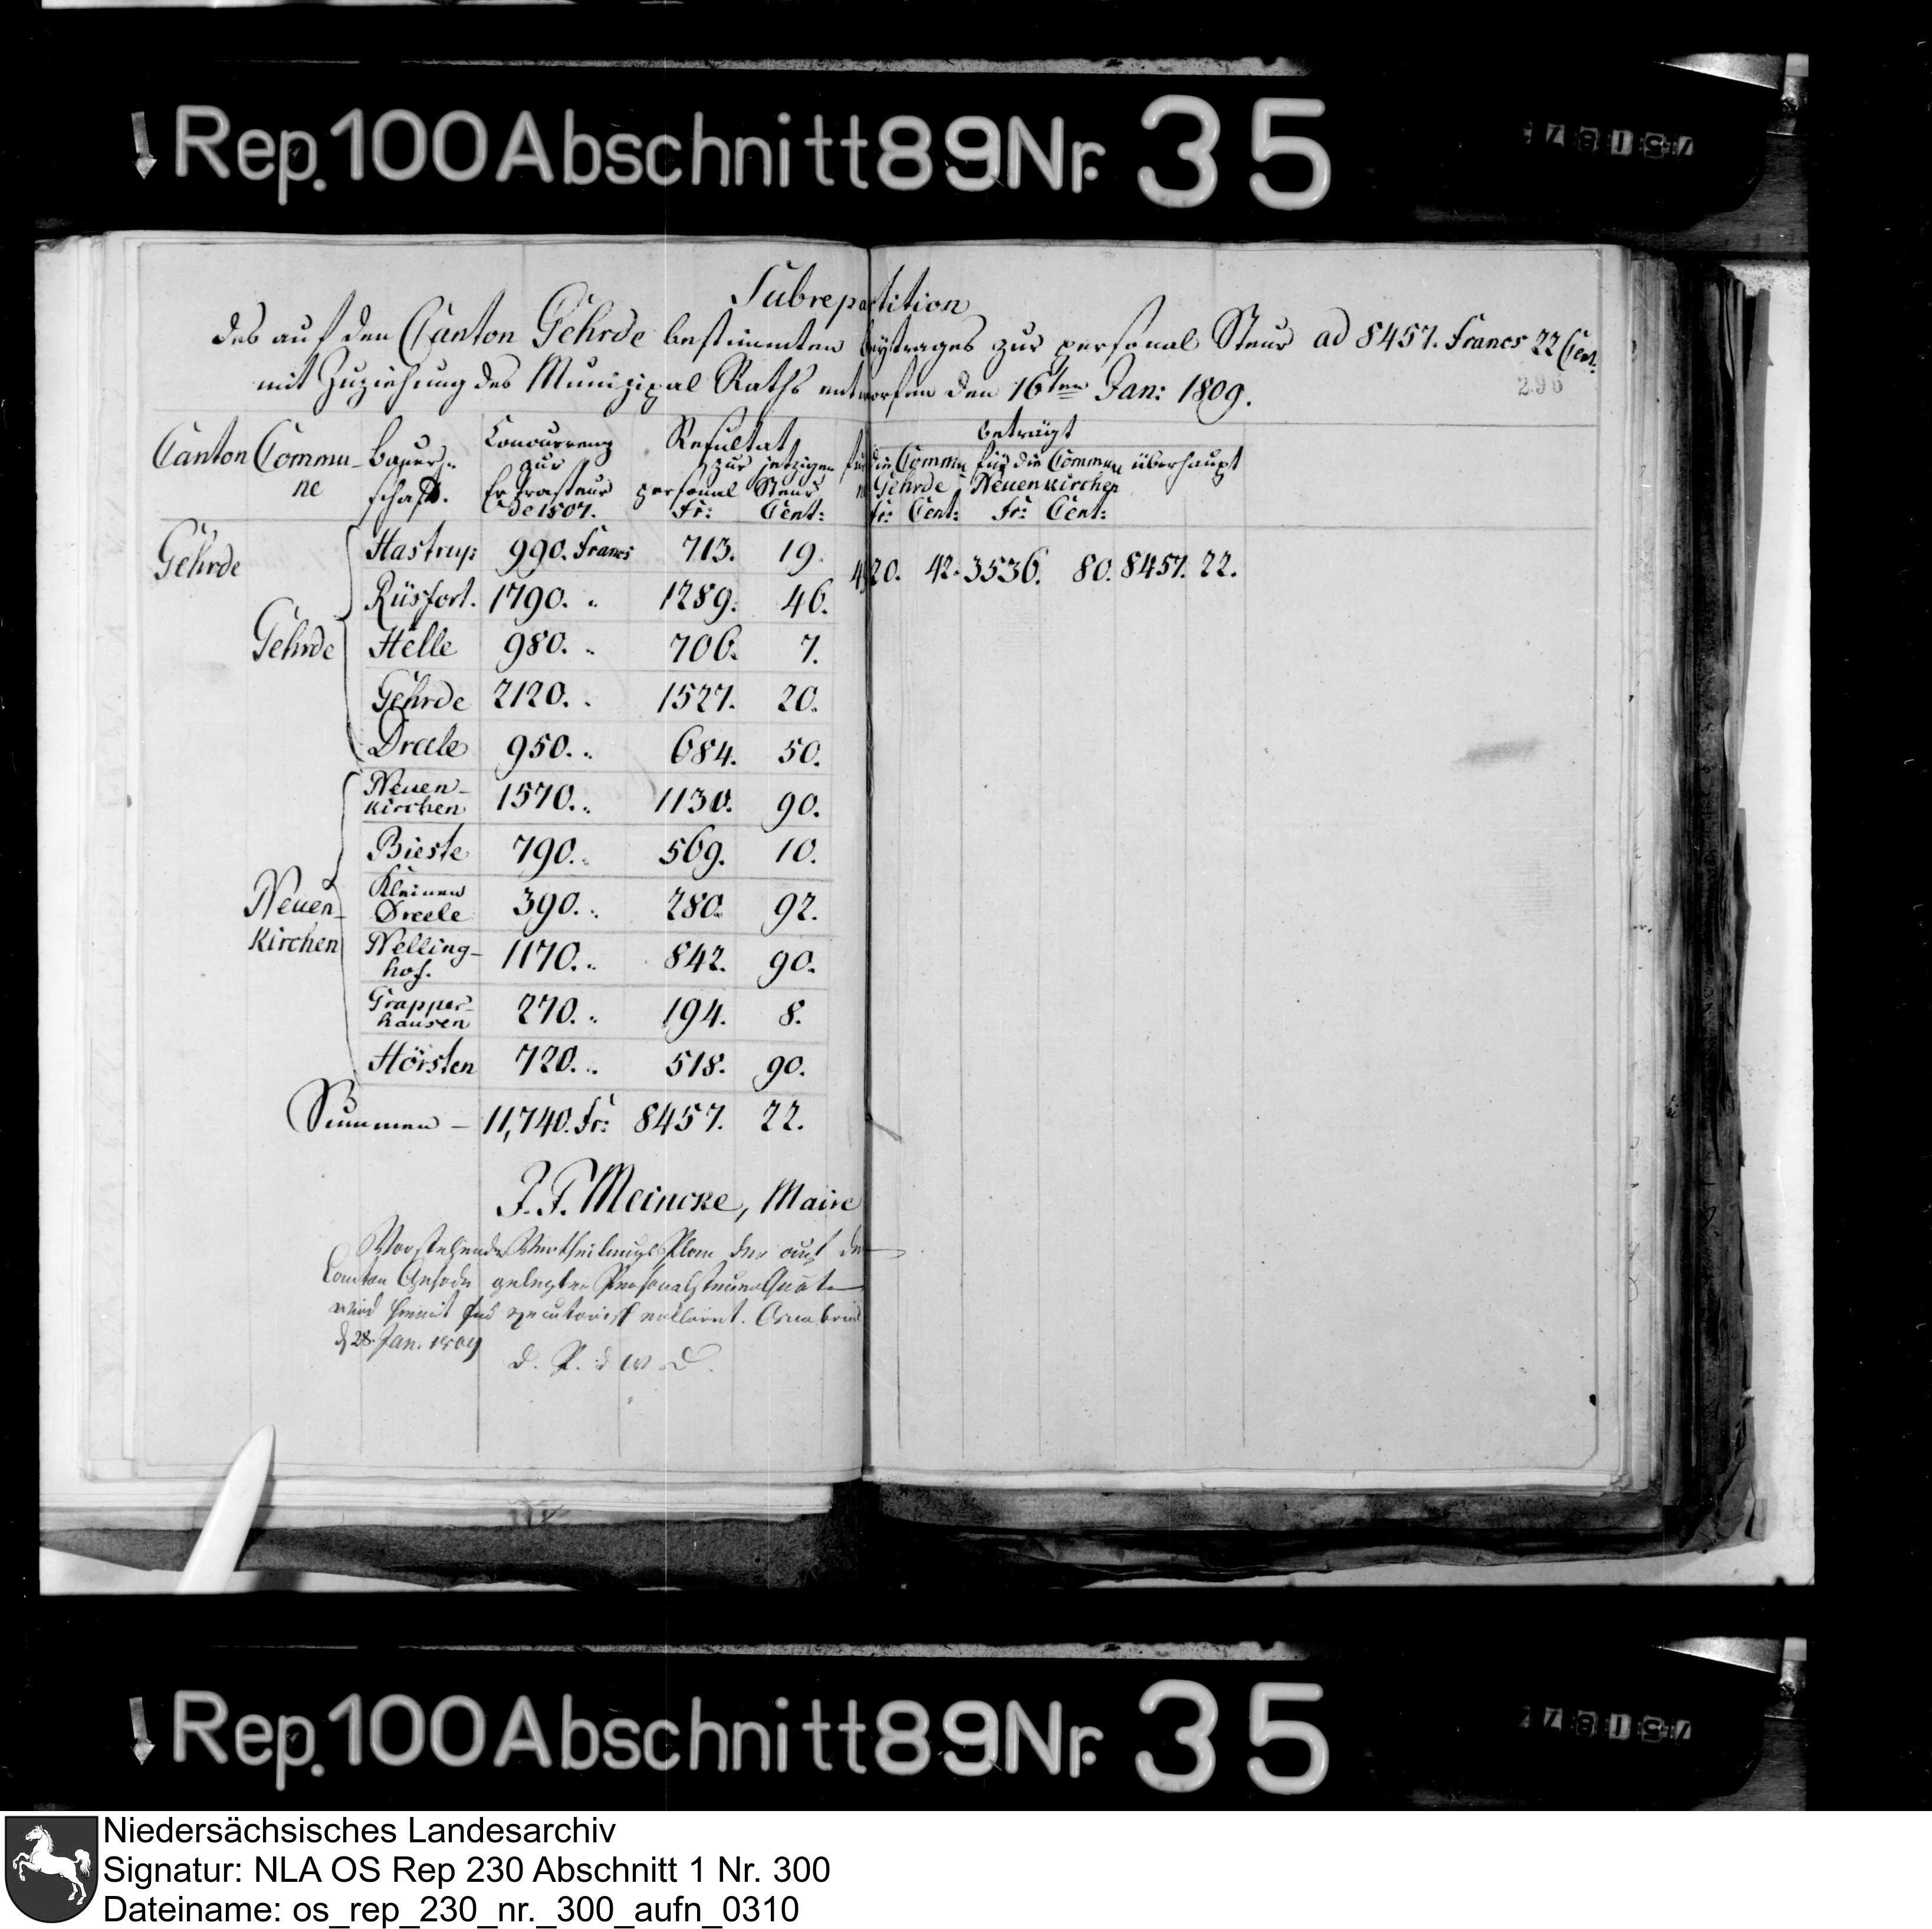 Rep. 100 Abschnitt 89 Nr. 35
Subrepartition
des auf den Canton Gehrde bestimmten Beytrages zur personal Steur ad 8457. Francs 22 Cent.
mit Zuziehung des Munizipal Raths entworfen den 16ten Jan: 1809.
296
Canton Commu- Bauer- Concurrenz Resultat beträgt
ne schaft. zur zur jetzigen für die Commu für die Commun überhaupt
Extrasteur personal Steur ne Gehrde Neuenkirchen
de 1807. Fr: Cent: fr: Cent: fr: Cent:
Gehrde Hastrup: 990. Francs 713. 19. 4920. 42. 3536. 80. 8457. 22.
Rüsfort. 1790. " 1289. 46.
Gehrde Helle 980. " 706. 7.
Gehrde 2120. " 1527. 20.
Dreele 950. " 684. 50.
Neuen-
kirchen 1570. " 1130. 90.
Bieste 790. " 569. 10.
Neuen-
Kirchen
Kleinen
Dreele 390. " 280. 92.
Nelling-
hof. 1170. " 842. 90.
Grapper-
hausen 270. " 194. 8.
Hörsten 720. " 518. 90.
Summen - 11,740. Fr: 8457. 22.
J. F. Meincke, Maire
Vorstehender Vertheilungs Plan der auf den
Canton Gehrde gelegten Personalsteuer Quote
wird hiemit für executorisch erklärt. Osnabrück
d 28. Jan. 1809
Rep. 100 Abschnitt 89 Nr. 35
Niedersächsisches Landesarchiv
Signatur: NLA OS Rep 230 Abschnitt 1 Nr. 300
Dateiname: os_rep_230_nr._300_aufn_0310